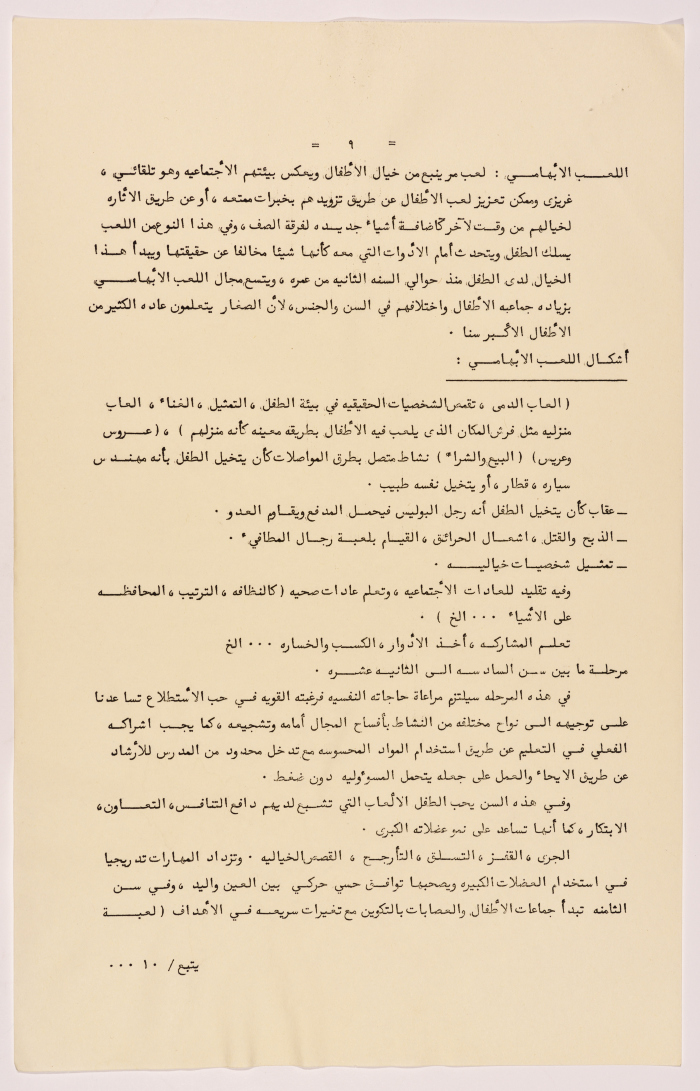 = ٩ =
اللعـــب الأبهامـي : لعب مر ينبع من خيال الأطفال ويعكس بيئتهم الأجتماعيه وهو تلقائـي ،
غريزى وممكن تعزيز لعب الأطفال عن طريق تزويدهم بخبرات ممتعه ، أو عن طريق الأثاره
لخيالهم من وقت لآخر كاضافة أشياء جديده لغرفة الصف ، وفي هذا النوع من اللعب
يسلك الطفل ويتحدث أمام الأدوات التي معه كأنها شيئا مخالفا عن حقيقتها ويبدأ هـذا
الخيال لدى الطفل منذ حوالي السنه الثانيه من عمره ، ويتسع مجال اللعب الأبهامـــي
بزياده جماعيه الأطفال واختلافهم في السن والجنس ، لأن الصغار يتعلمون عاده الكثير من
الأطفال الأكـبر سنا ٠
أشكـال اللعـب الأبهامـي :
( العاب الدمى ، تقمص الشخصيات الحقيقيه في بيئة الطفل ، التمثيل ، الغناء ، العاب
منزليه مثل فرش المكان الذى يلعب فيه الأطفال بطريقه معينه كأنه منزلهم ) ، ( عـــروس
وعريس ) ( البيع والشراء ) نشاط متصل بطرق المواصلات كأن يتخيل الطفل بأنه مهنـدس
سياره ، قطار ، أو يتخيل نفسه طبيب ٠
ــ عقاب كأن يتخيل الطفل أنه رجل البوليس فيحمـل المدفع ويقاوم العدو ٠
ــ الذبح والقتل ، اشعـال الحرائق ، القيـام بلعبـة رجـال المطافيء ٠
ــ تمثـيل شخصيـات خياليـــه ٠
وفيه تقليد للعادات الأجتماعيه ، وتعلم عادات صحيه ( كالنظافه ، الترتيب ، المحافظــه
على الأشياء ٠٠٠ الخ ) ٠
تعلـم المشاركـه ، أخـذ الأدوار ، الكسـب والخساره ٠٠٠ الخ
مرحلـة ما بين سـن السادسـه الـى الثانيـه عشـره ٠
في هذه المرحله سيلتزم مراعاة حاجاته النفسيه فرغبته القويه فـي حب الأستطلاع تساعدنا
علـى توجيهـه الـى نواح مختلفه من النشاط بأفساح المجال أمامه وتشجيعـه ، كما يجـب اشراكـه
الفعلي فـي التعليم عن طريق استخدام المواد المحسوسه مع تدخل محدود من المدرس للأرشاد
عن طريق الايحاء والعمل على جعله يتحمل المسؤوليه دون ضغط ٠
وفـي هذه السن يحب الطفل الألعاب التي تشبـع لديهم دافع التنافس ، التعـاون ،
الابتكار ، كما أنهـا تساعد على نمو عضلاته الكبرى ٠
الجرى ، القفـز ، التسلـق ، التأرجـح ، القصص الخياليه ٠ وتزداد المهارات تدريجيا
فـي استخدام العضلات الكبيره ويصحبها توافـق حسي حركـي بين العين واليد ، وفي سـن
الثامنه تبدأ جماعات الأطفال والعصابات بالتكوين مع تغيرات سريعـه فـي الأهداف ( لعبــة
يتبع / ١٠ ٠٠٠